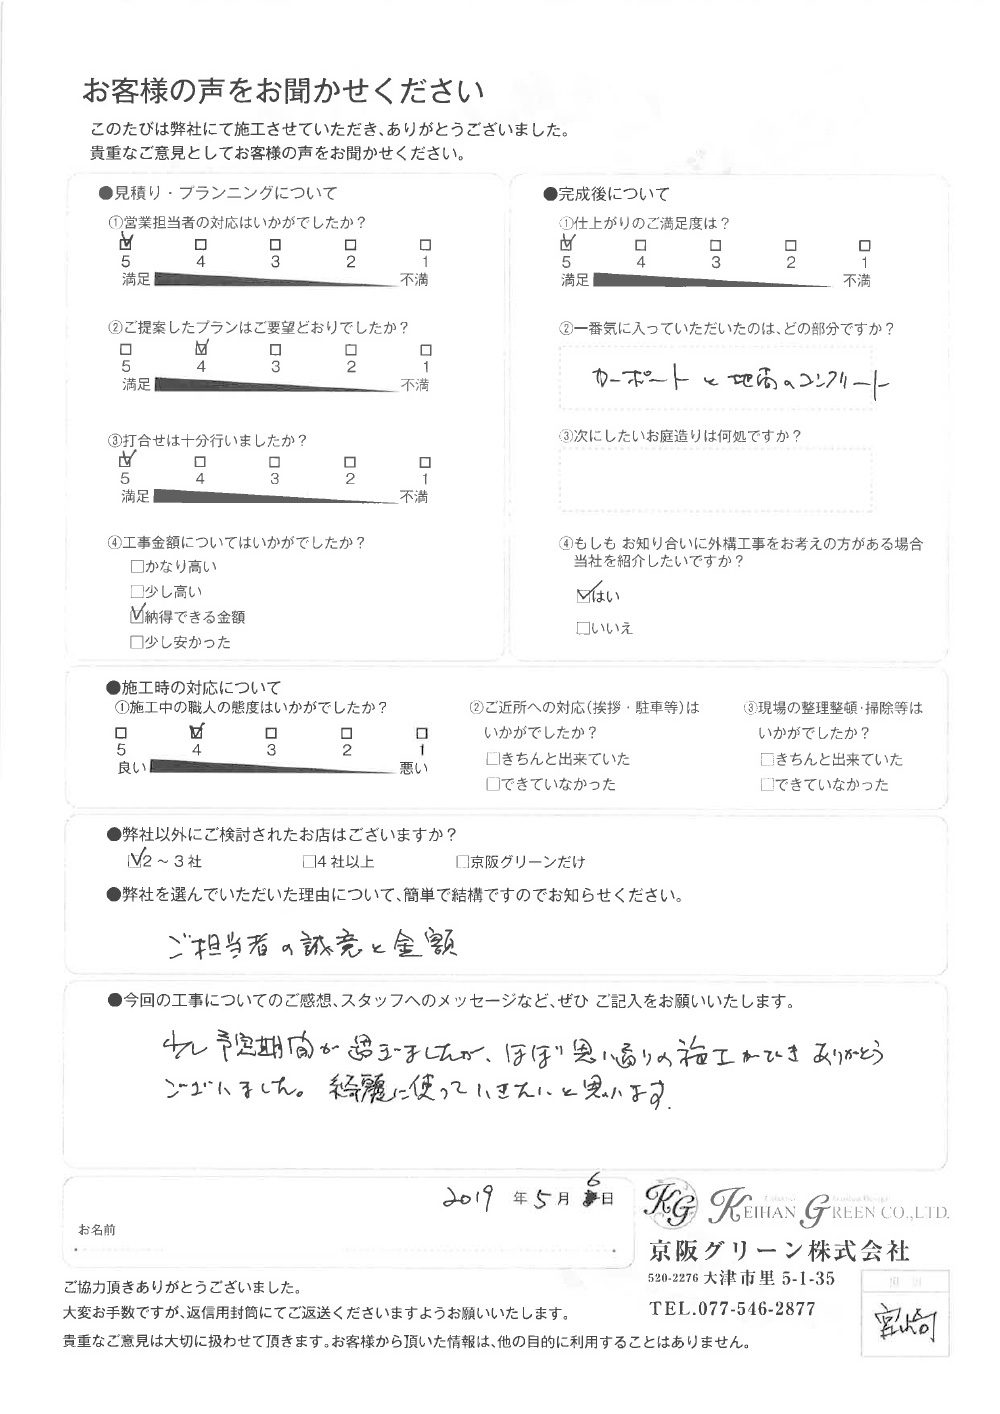 お客様の声をお聞かせください
このたびは弊社にて施工させていただき、ありがとうございました。
貴重なご意見としてお客様の声をお聞かせください。
●見積り・プランニングについて
①営業担当者の対応はいかがでしたか？
☑ □ □ □ □
5 4 3 2 1
満足 不満
②ご提案したプランはご要望どおりでしたか？
□ ☑ □ □ □
5 4 3 2 1
満足 不満
③打合せは十分行いましたか？
☑ □ □ □ □
5 4 3 2 1
満足 不満
④工事金額についてはいかがでしたか？
□かなり高い
□少し高い
☑納得できる金額
□少し安かった
●完成後について
①仕上がりのご満足度は？
☑ □ □ □ □
5 4 3 2 1
満足 不満
②一番気に入っていただいたのは、どの部分ですか？
カーポートと地面のコンクリート
③次にしたいお庭造りは何処ですか？
④もしも お知り合いに外構工事をお考えの方がある場合
当社を紹介したいですか？
☑はい
□いいえ
●施工時の対応について
①施工中の職人の態度はいかがでしたか？
□ ☑ □ □ □
5 4 3 2 1
良い 悪い
②ご近所への対応(挨拶・駐車等)は
いかがでしたか？
□きちんと出来ていた
□できていなかった
③現場の整理整頓・掃除等は
いかがでしたか？
□きちんと出来ていた
□できていなかった
●弊社以外にご検討されたお店はございますか？
☑2～3社 □4社以上 □京阪グリーンだけ
●弊社を選んでいただいた理由について、簡単で結構ですのでお知らせください。
ご担当者の誠意と金額
●今回の工事についてのご感想、スタッフへのメッセージなど、ぜひ ご記入をお願いいたします。
少し予定期間が過ぎましたが、ほぼ思い通りの施工ができ ありがとう
ございました。綺麗に使っていきたいと思います。
2019 年 5 月 6 日
お名前
KG KEIHAN GREEN CO.,LTD.
京阪グリーン株式会社
520-2276 大津市里 5-1-35
TEL.077-546-2877
宮崎
ご協力頂きありがとうございました。
大変お手数ですが、返信用封筒にてご返送くださいますようお願いいたします。
貴重なご意見は大切に扱わせて頂きます。お客様から頂いた情報は、他の目的に利用することはありません。